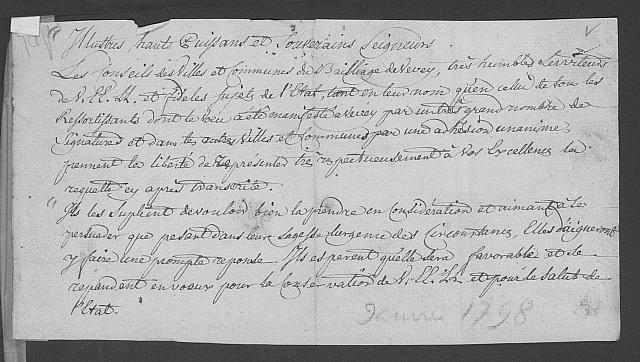 " Illustres, hauts Puissans et Souverains Seigneurs
Les Conseils des Villes et Communes du Bailliage de Vevey, très humbles serviteurs
de V. EE. LL. et fideles sujets de l'Etat, tant en leur nom qu'en cellui de tous les
Ressortissants dont le voeu a été manifesté a Vevey par un très grand nombre de
signatures et dans les autres Villes et Communes par une adhésion unanime,
prennent la liberté de représenter très respectueusement à Vos Excellences la
requette cy après transcritte.
" Ils les suplient de vouloir bien la prendre en Considération et aimant à se
persuader que pesant dans leur sagesse l'urgence des Circonstances Elles daigneront
y faire une prompte reponse. Ils esperent qu'elle sera favorable et se
repandent en voeaux pour la Conservation de V. EE. LL. et pour le salut de
l'Etat.
Janvier 1798